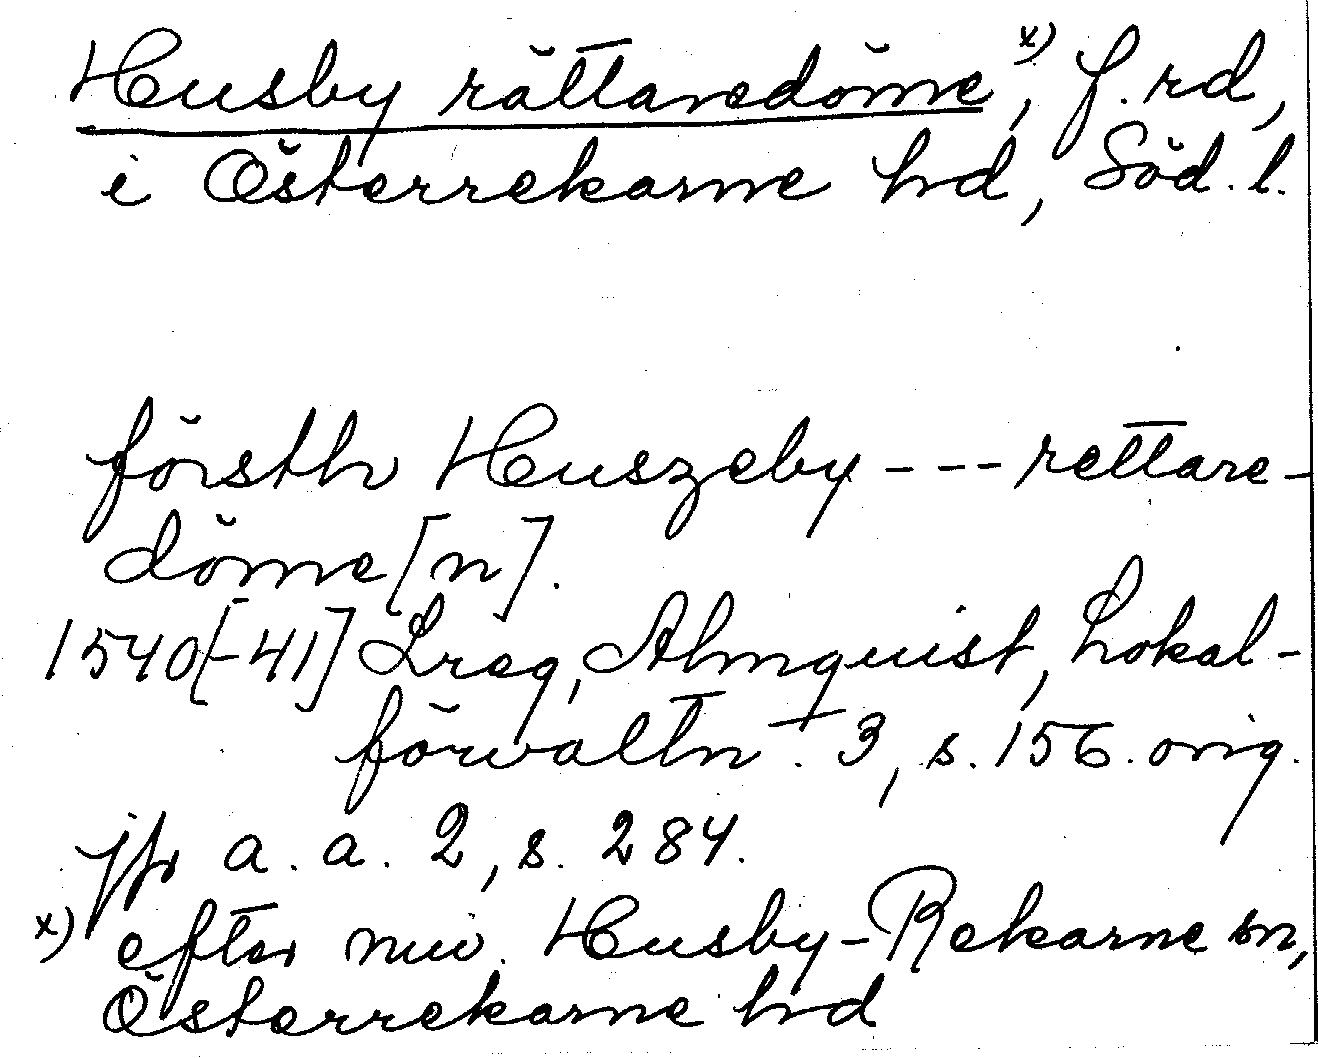 Husby rättaredöme x), f. rd,
i Österrekarne hd, Söd. l.
försth Huszeby --- rettare-
döme [n].
1540[-41] Lreg, Almquist, Lokal-
förvaltn. 3, s. 156. orig.
jfr a. a. 2, s. 284.
x) efter nuv. Husby-Rekarne sn,
Österrekarne hd